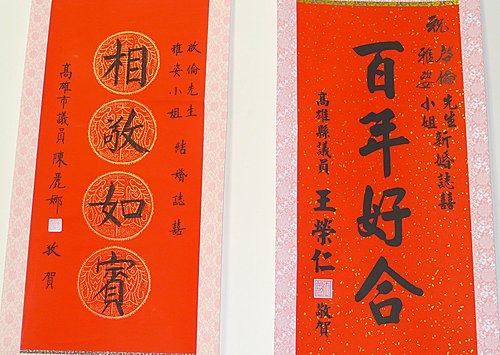 祝
啟倫先生
雅姿小姐
新婚誌囍
百年好合
高雄縣議員 王榮仁
敬賀
啟倫先生
雅姿小姐
結婚誌囍
相敬如賓
高雄市議員 陳麗娜
敬賀